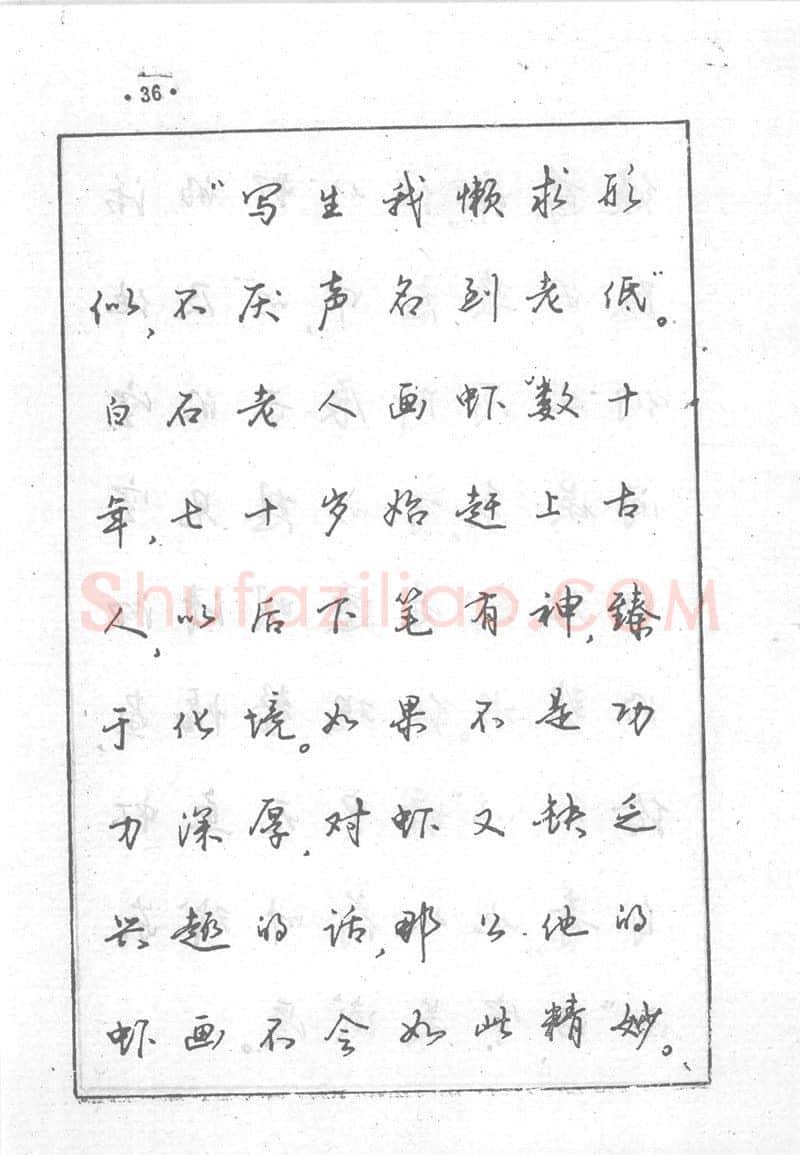 ·36·
“写生我懒求形
似,不厌声名到老低”。
白石老人画虾数十
年,七十岁始赶上古
人,以后下笔有神,臻
于化境。如果不是功
力深厚,对虾又缺乏
兴趣的话,那么他的
虾画不会如此精妙。
Shufaziliao.COM